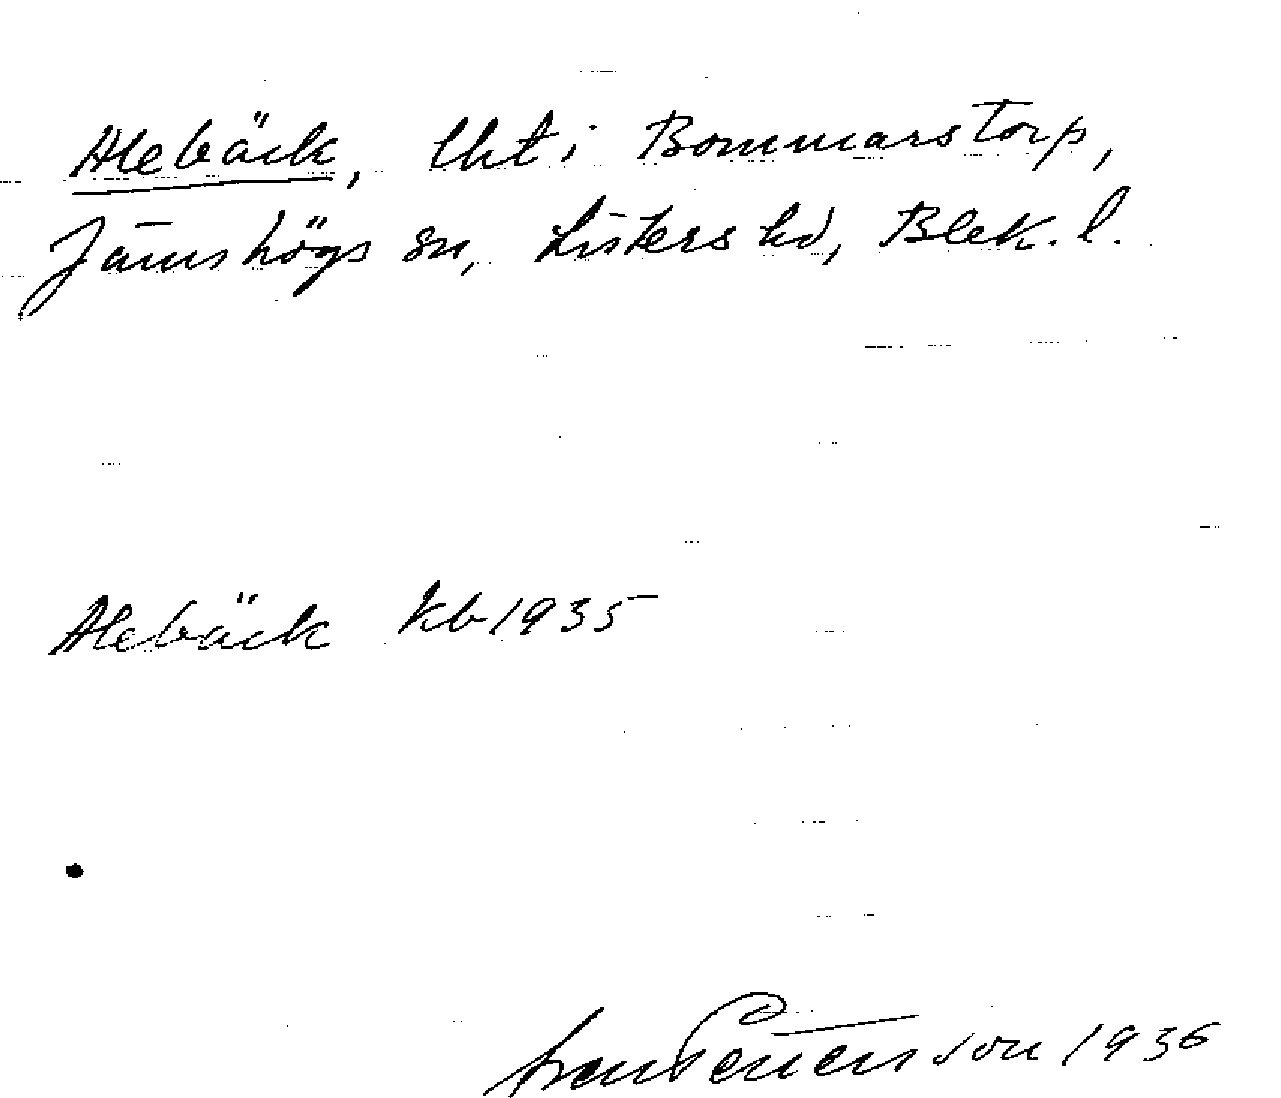 Alebäck, lht i Bommarstorp,
Jämshögs sn, Listers hd, Blek. l.
Alebäck kb 1935
Petterson 1936